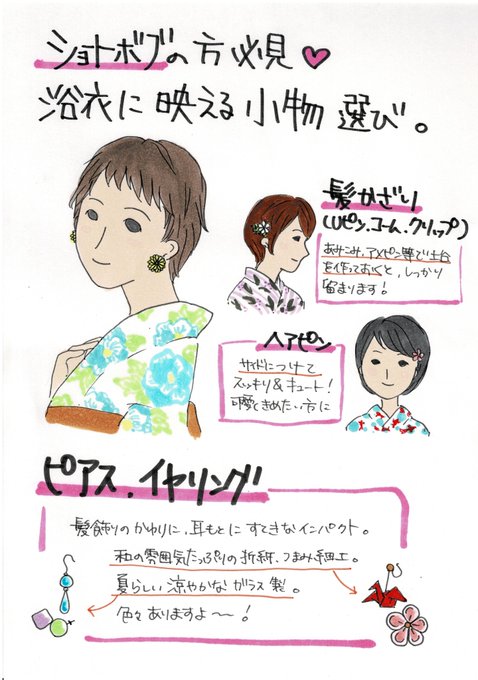 ショートボブの方必見♥
浴衣に映える小物選び。
髪かざり
(Uピン、コーム、クリップ)
あみこみ、アメピン等で土台
を作っておくと、しっかり
留まります!
ヘアピン
サイドにつけて
スッキリ&キュート!
可愛くきめたい方に
ピアス、イヤリング
髪飾りのかわりに、耳もとにすてきなインパクト。
和の雰囲気たっぷりの折紙、つまみ細工。
夏らしい涼やかなガラス製。
色々ありますよ〜!